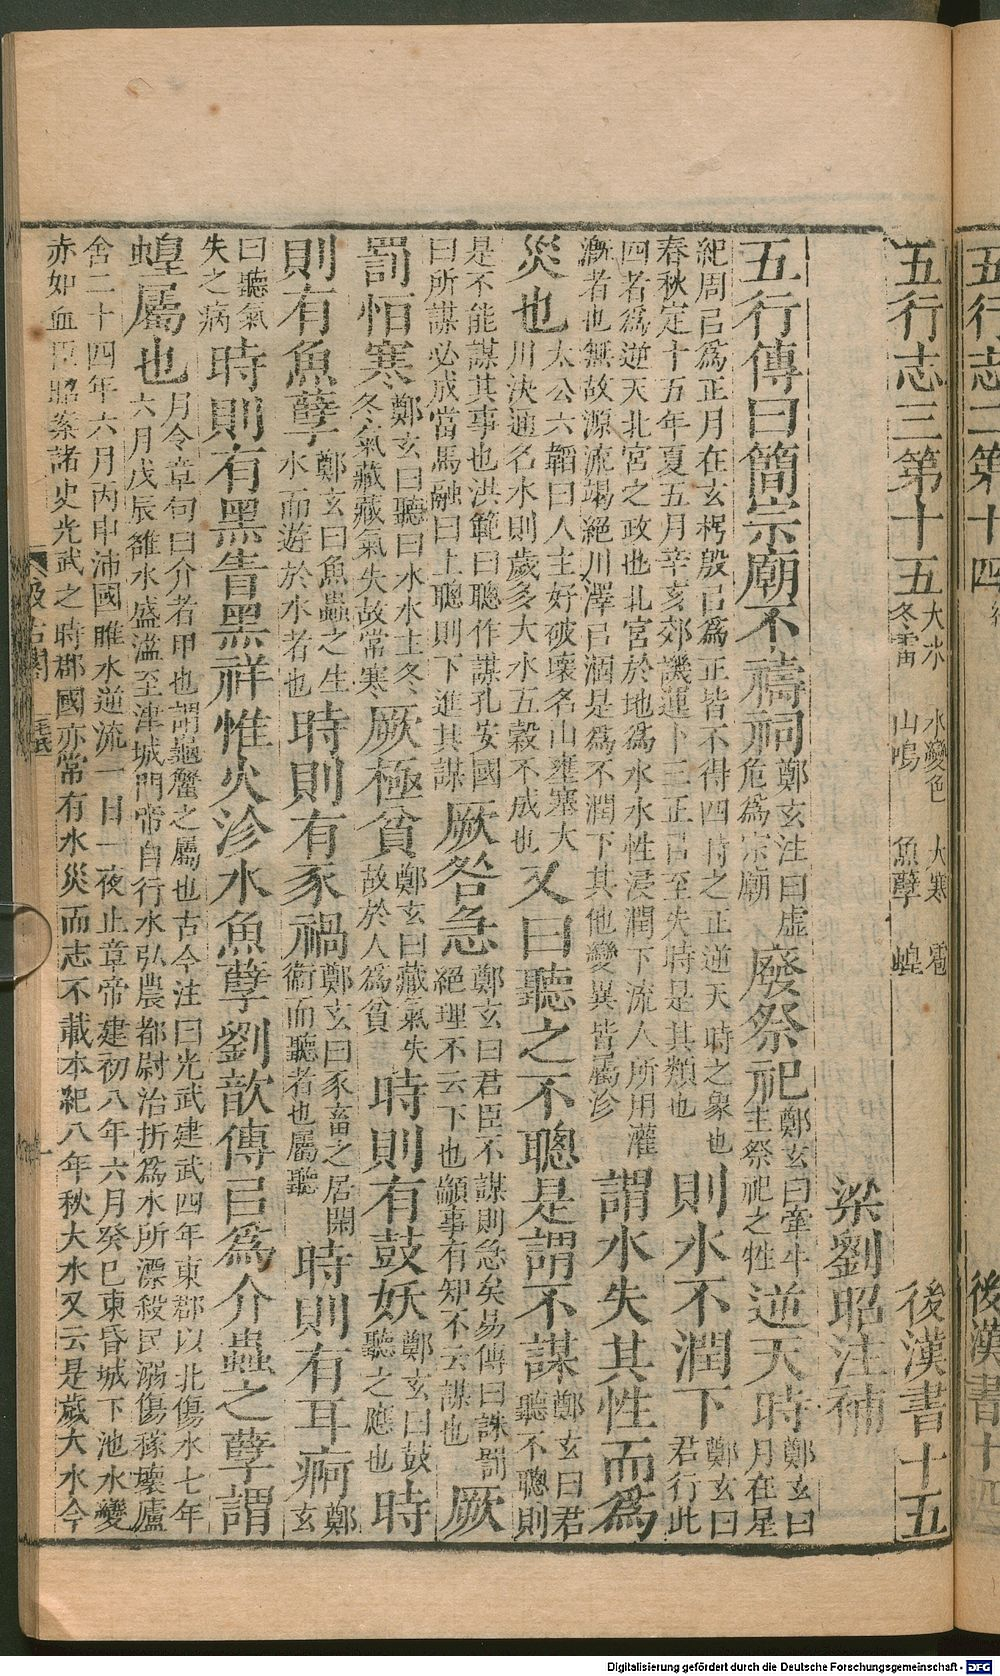 五行志二第十四 後漢書十四
五行志三第十五 大水 水變色 大寒 雹 冬雷 山鳴 魚孽 蝗 後漢書十五
梁劉昭注補
五行傳曰簡宗廟不禱祠鄭玄注曰虛危為宗廟廢祭祀鄭玄曰牽牛主祭祀之牲逆天時鄭玄曰月在星
紀周㠯為正月在玄枵殷㠯為正皆不得四時之正逆天時之象也春秋定十五年夏五月辛亥郊譏運卜三正㠯至失時是其類也則水不潤下鄭玄曰君行此
四者為逆天北宮之政也北宮於地為水水性浸潤下流人所用灌漑者也無故源流竭絕川澤㠯涸是為不潤下其他變異皆屬沴謂水失其性而為
災也太公六韜曰人主好破壞名山壅塞大川決通名水則歲多大水五穀不成也又曰聽之不聰是謂不謀鄭玄曰君聽不聰則
是不能謀其事也洪範曰聰作謀孔安國曰所謀必成當馬融曰上聰則下進其謀厥咎急鄭玄曰君臣不謀則急矣易傳曰誅罰絕理不云下也顓事有知不云謀也厥
罰恒寒鄭玄曰聽曰水水主冬冬氣藏藏氣失故常寒厥極貧鄭玄曰藏氣失故於人為貧時則有鼓妖鄭玄曰鼓聽之應也時
則有魚孽鄭玄曰魚蟲之生水而遊於水者也時則有豕禍鄭玄曰豕畜之居閑衞而聽者也屬聽時則有耳痾鄭玄
曰聽氣失之病時則有黑眚黑祥惟火沴水魚孽劉歆傳㠯為介蟲之孽謂
蝗屬也月令章句曰介者甲也謂龜蟹之屬也古今注曰光武建武四年東郡以北傷水七年六月戊辰雒水盛溢至津城門帝自行水弘農都尉治折為水所漂殺民溺傷稼壞廬
舍二十四年六月丙申沛國睢水逆流一日一夜止章帝建初八年六月癸巳東昏城下池水變赤如血臣昭案諸史光武之時郡國亦常有水災而志不載本紀八年秋大水又云是歲大水今
汲古閣
毛氏
Digitalisierung gefördert durch die Deutsche Forschungsgemeinschaft - DFG